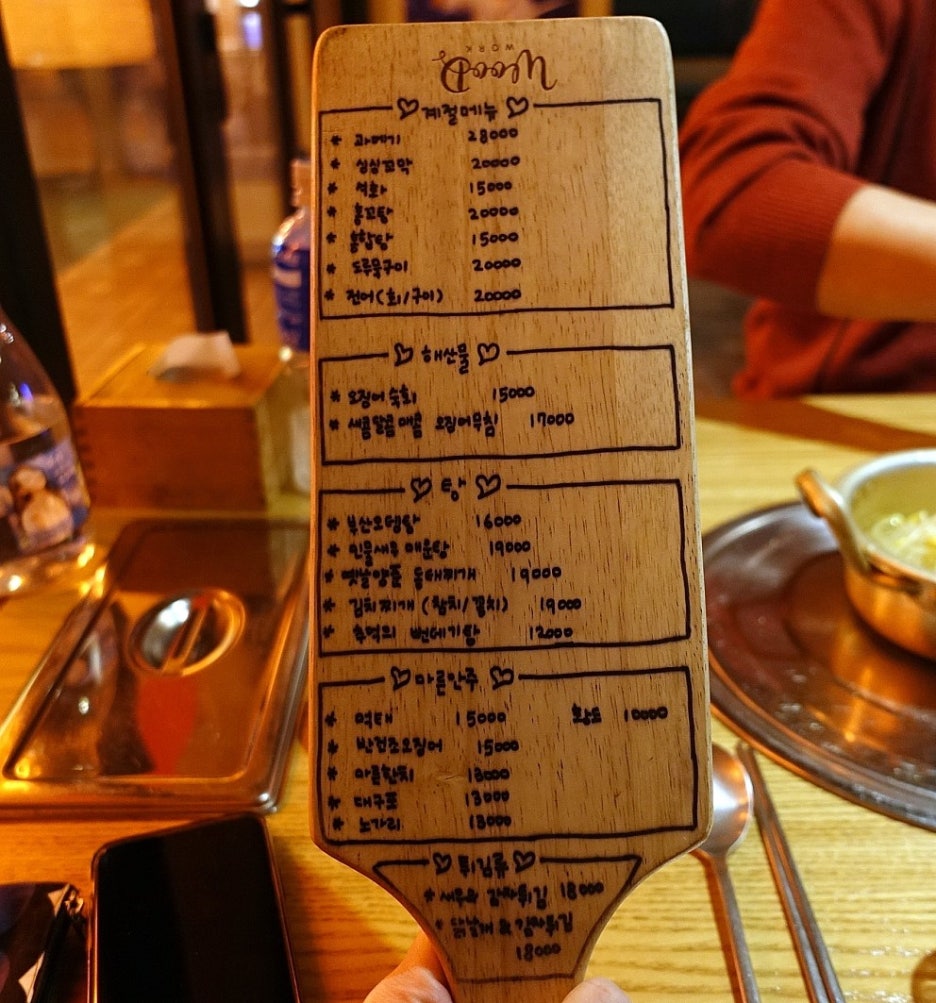 WooD
WORK
계절메뉴
* 과메기 28000
* 싱싱꼬막 20000
* 석화 15000
* 홍꼬탕 20000
* 홍합탕 15000
* 도루묵구이 20000
* 전어(회/구이) 20000
해산물
* 오징어숙회 15000
* 새콤달콤매콤 오징어무침 17000
탕
* 부산오뎅탕 16000
* 민물새우 매운탕 19000
* 옛날양푼 동태찌개 19000
* 김치찌개 (참치/꽁치) 19000
* 추억의 뻔데기탕 12000
마른안주
* 먹태 15000 황도 10000
* 반건조오징어 15000
* 마른한치 13000
* 대구포 13000
* 노가리 13000
튀김류
* 새우& 감자튀김 18000
* 닭날개 & 감자튀김
18000